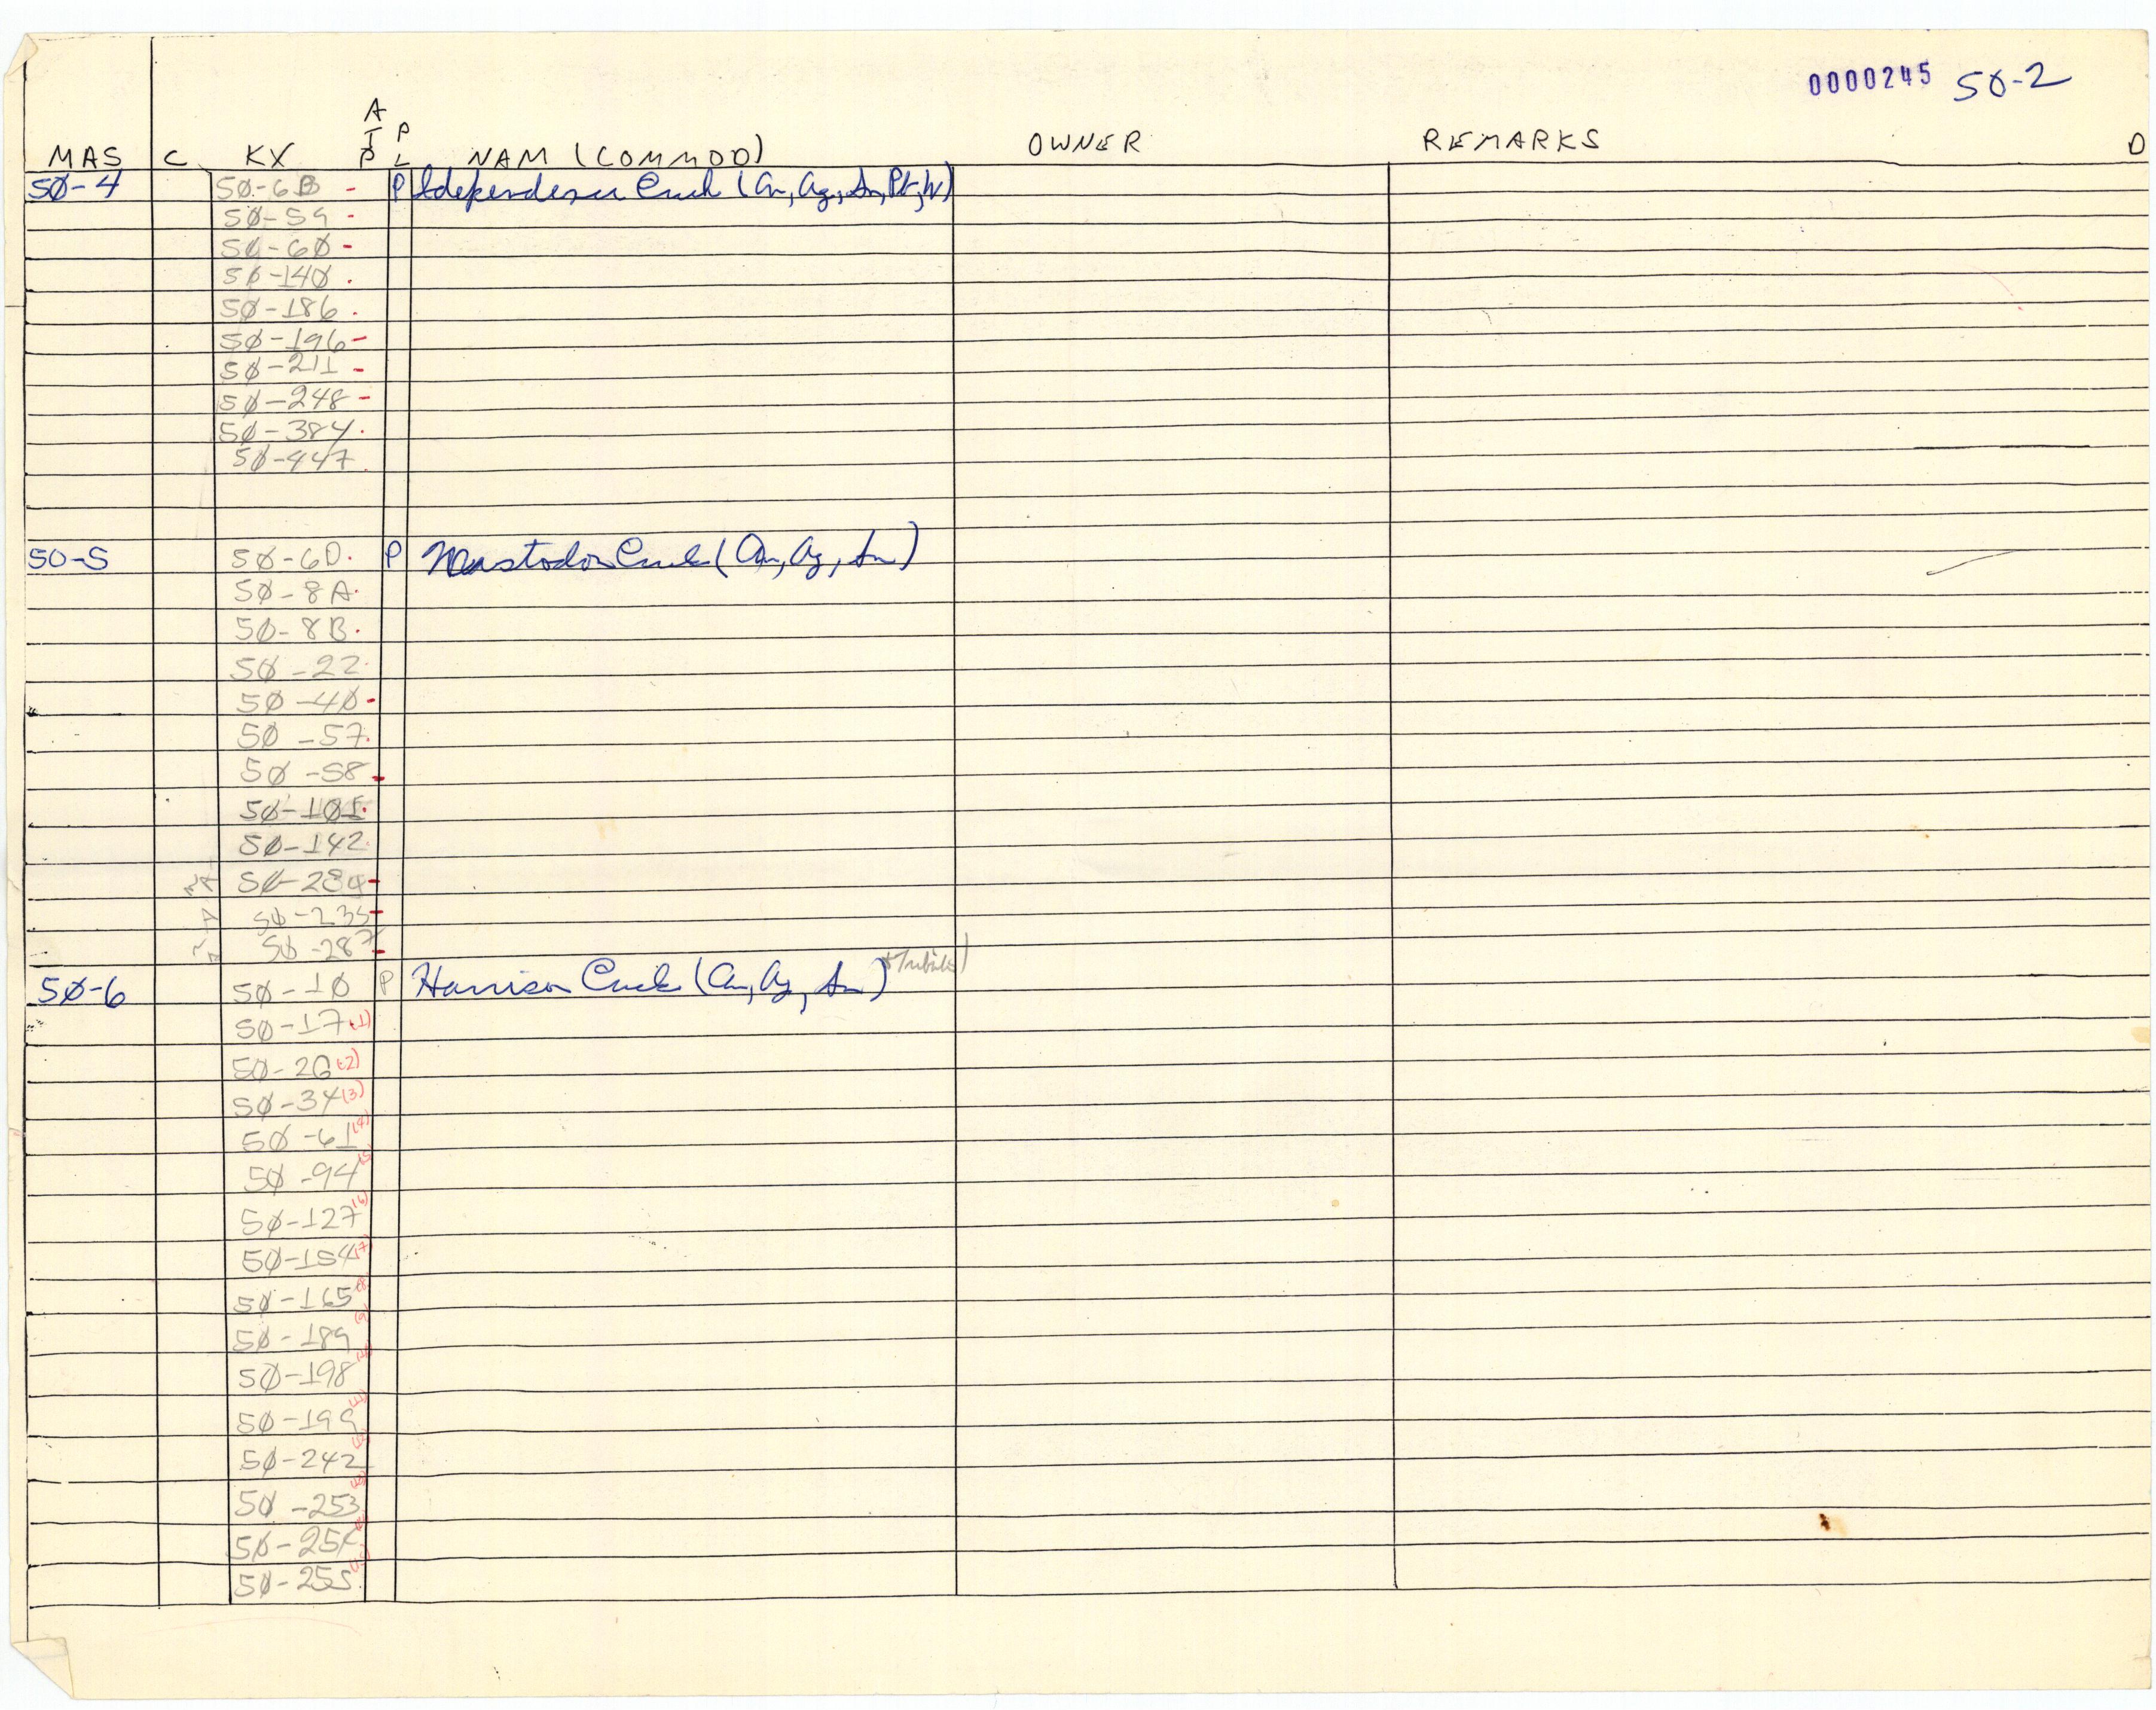 0000245 50-2
MAS C KX ATP PL NAM (COMMOD) OWNER REMARKS D
50-4 50-6B - P Idependence Creek (Au, Ag, Sn, Pt, W)
50-59 -
50-60 -
50-140 .
50-186 .
50-196 -
50-211 -
50-248 -
50-384 .
50-447 .
50-5 50-6D. P Mastodon Creek (Au, Ag, Sn)
50-8A.
50-8B.
50-22.
50-40 -
50-57.
50-58 -
50-101.
50-142.
50-284 -
50-235 -
50-287 -
50-6 50-10 P Harrison Creek (Au, Ag, Sn)
50-17 (1)
50-26 (2)
50-34 (3)
50-61 (4)
50-94 (5)
50-127 (6)
50-154 (7)
50-165 (8)
50-189 (9)
50-198 (10)
50-199 (11)
50-242 (12)
50-253 (13)
50-254
50-255